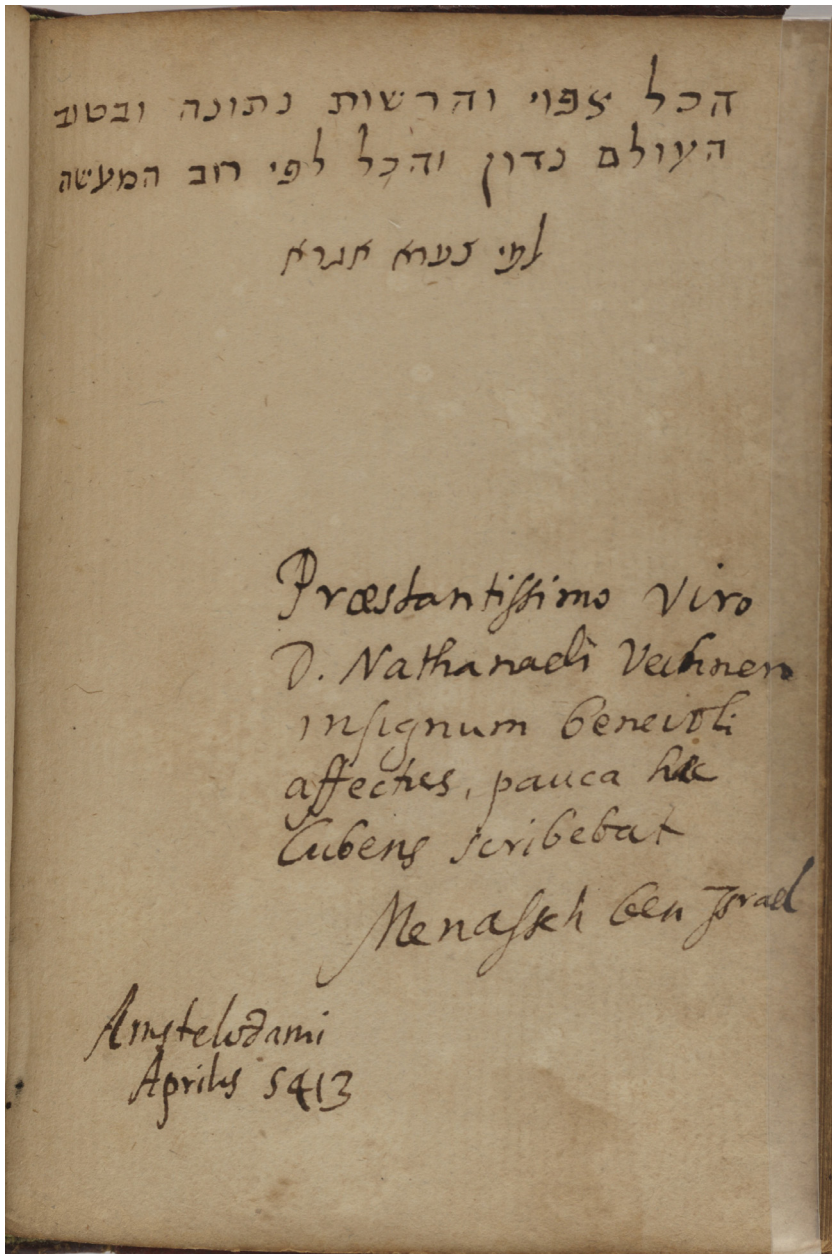 הכל צפוי והרשות נתונה ובטוב
העולם נדון והכל לפי רוב המעשה
לפי צערא אגרא
Præstantissimo Viro
D. Nathanaeli Vechnero
insignum benevoli
affectus, pauca hæc
lubens scribebat
Menasseh ben Israel
Amstelodami
Aprilis 5413